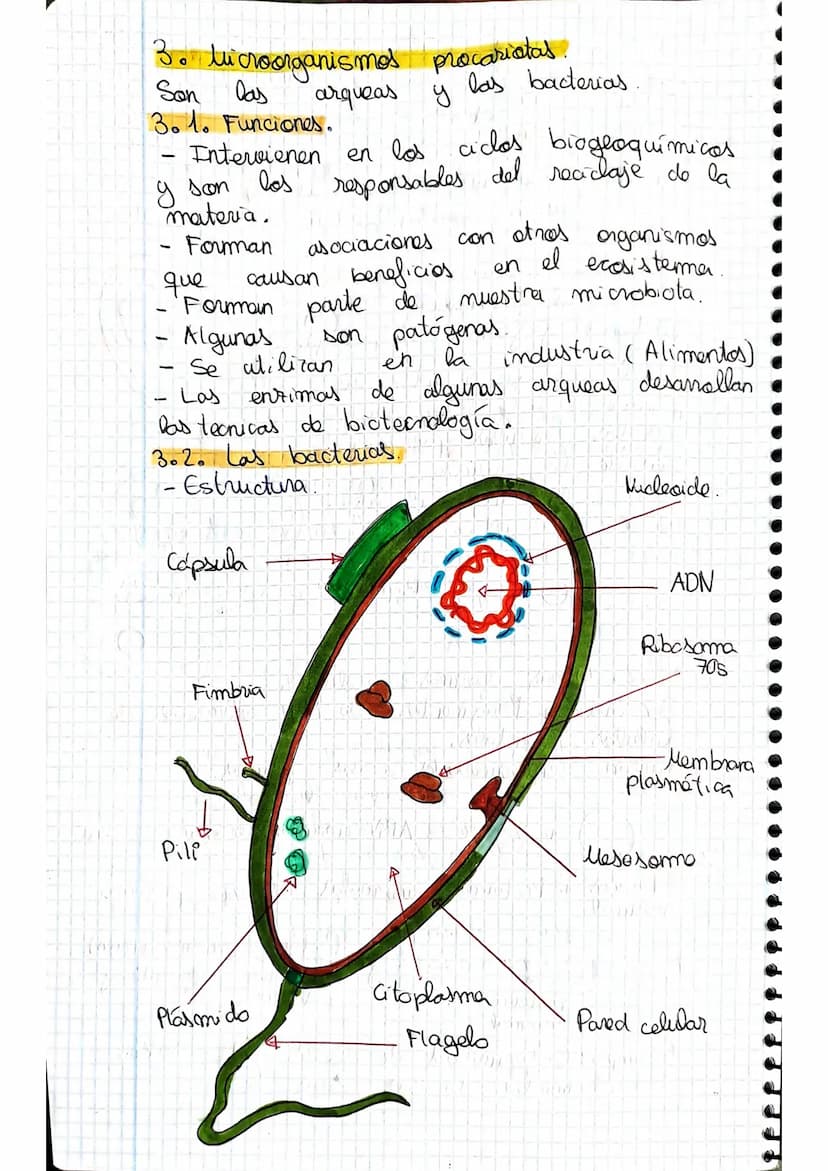 3. Microorganismos procariotas.
Son las arqueas y las bacterias.
3.1. Funciones.
- Intervienen en los ciclos biogeoquímicos
y son los responsables del reciclaje de la
materia.
- Forman asociaciones con otros organismos
que causan beneficios en el ecosistema.
- Forman parte de nuestra microbiota.
- Algunas son patógenas.
- Se utilizan en la industria (Alimentos)
- Las enzimas de algunas arqueas desarrollan
las tecnicas de biotecnología.
3.2. Las bacterias.
- Estructura.
Nucleoide.
Cápsula
ADN
Ribosoma
70s
Fimbria
Membrana
plasmática
Pili
Mesosoma
Citoplasma
Plásmido
Pared celular
Flagelo